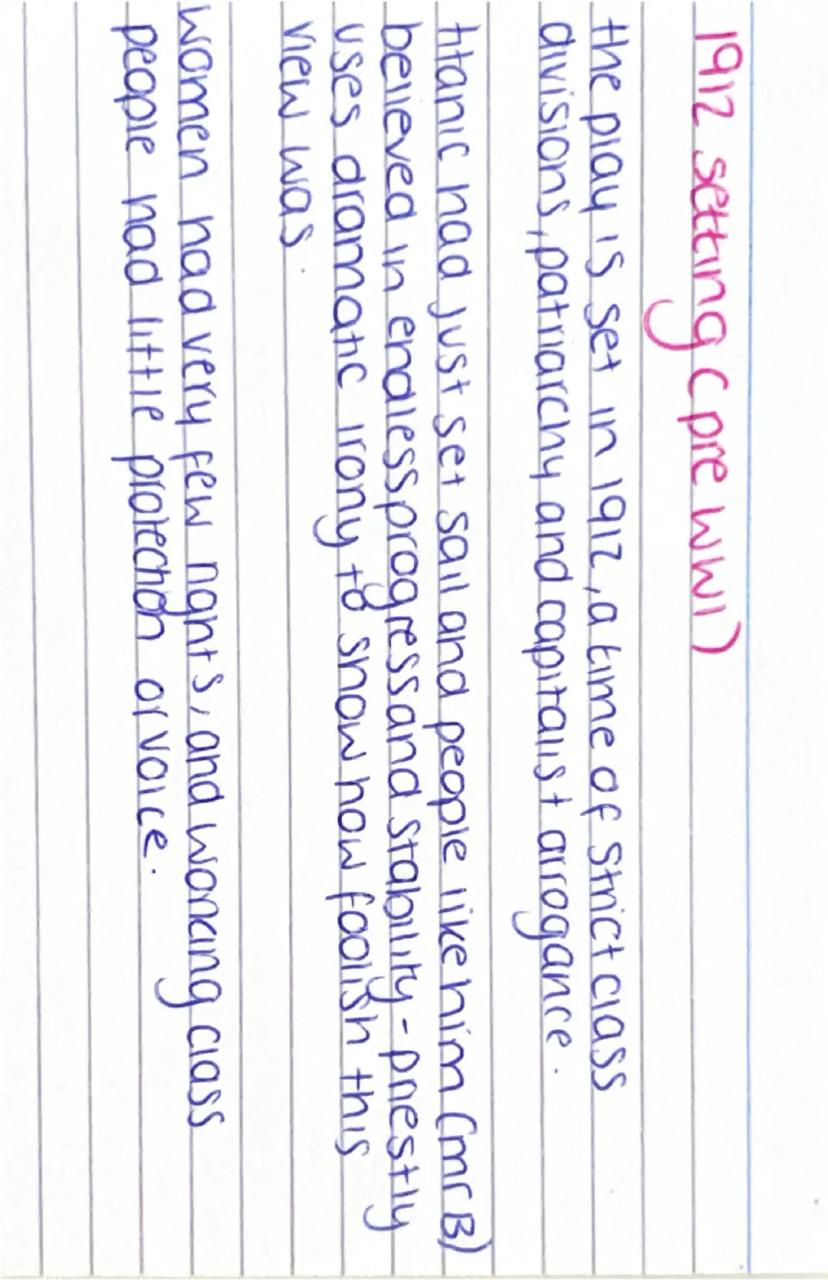 1912 setting (pre WW1)
the play is set in 1912, a time of strict class
divisions, patriarchy and capitalist arrogance.
titanic had just set sail and people like him (mr B)
believed in endless progress and stability - priestly
uses dramatic irony to show how foolish this
view was.
women had very few rights, and working class
people had little protection or voice.